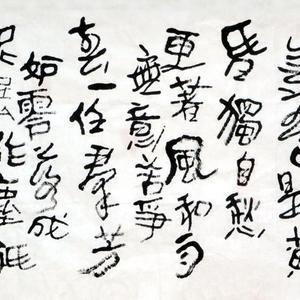 已是黃
昏獨自愁
更著風和雨
無意苦爭
春一任羣芳
零落成
泥碾作塵